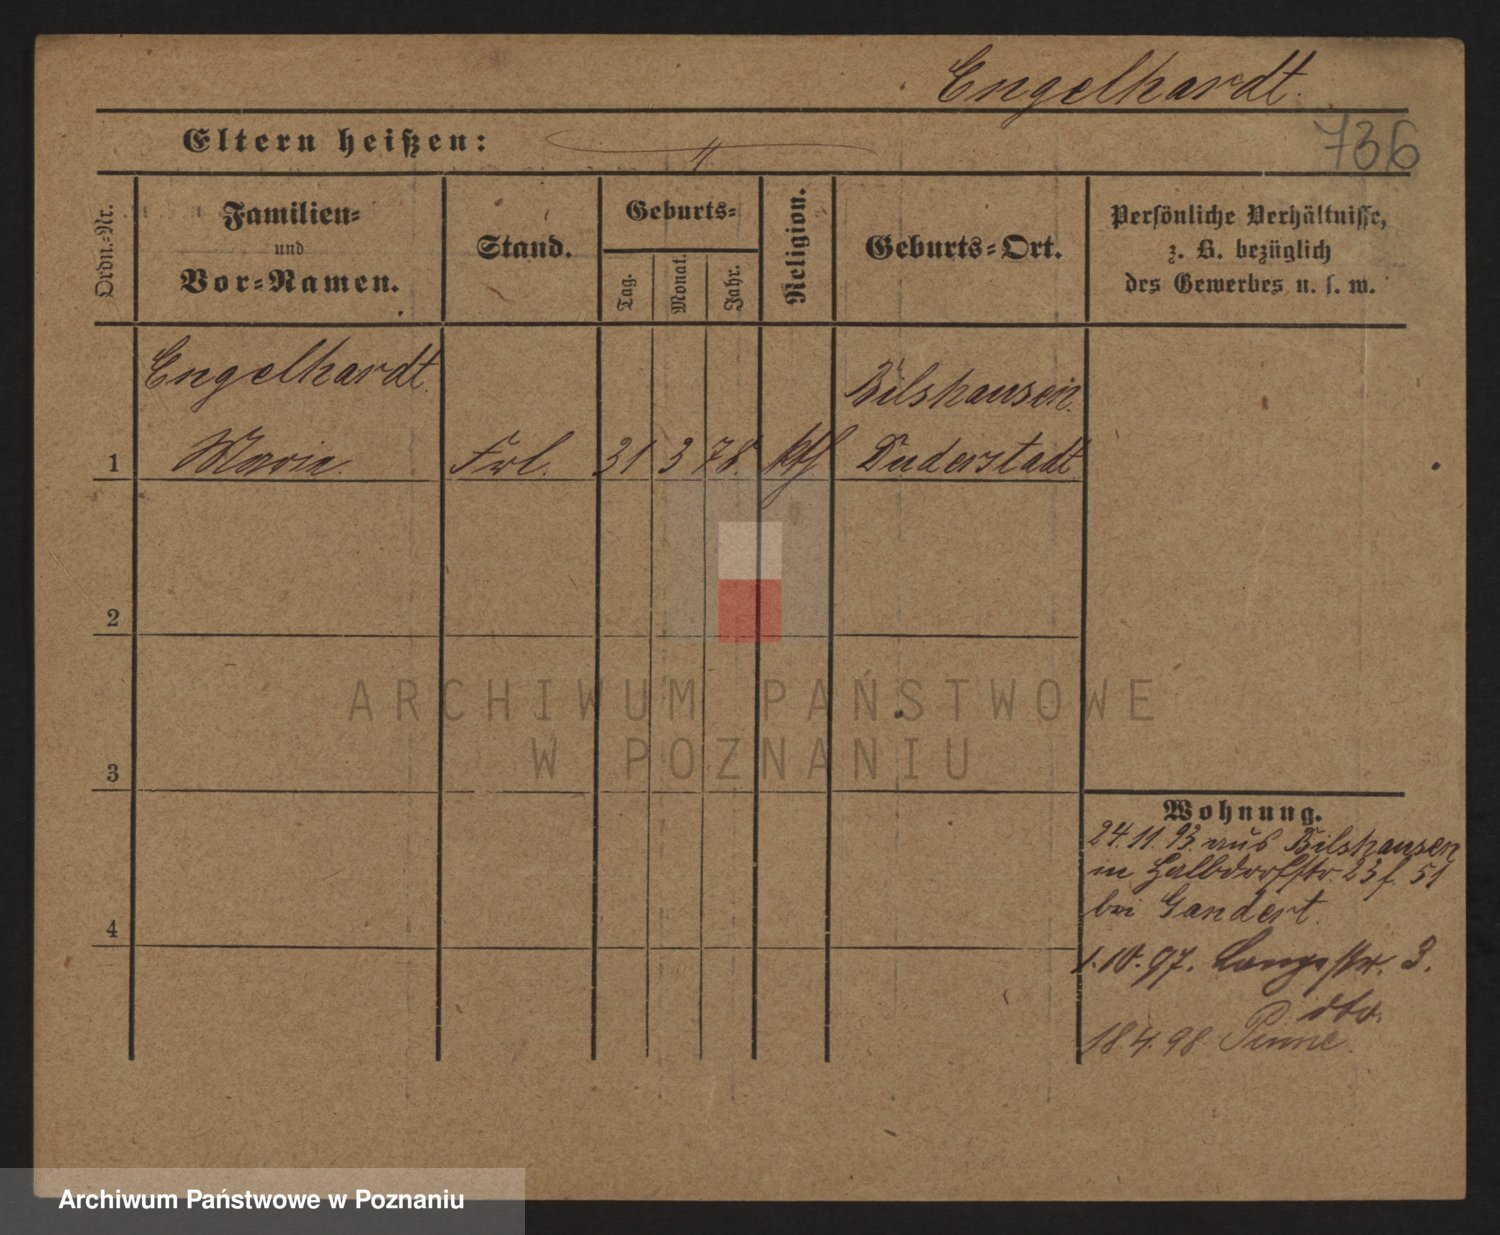 Engelhardt.
Eltern heißen:
736
Ordn.-Nr.
Familien-
und
Vor-Namen.
Stand.
Geburts-
Tag.
Monat.
Jahr.
Religion.
Geburts-Ort.
Persönliche Verhältnisse,
z. B. bezüglich
des Gewerbes u. s. w.
Engelhardt.
Bilshausen.
1 Marie. Frl. 31 3 78. kth Duderstadt
2
3
4
Wohnung.
24.11.93. aus Bilshausen
in Halbdorfstr. 23 f. 51
bei Gandert.
1.10.97. Langestr. 3.
dto.
18.4.98 Pinne.
ARCHIWUM PAŃSTWOWE
W POZNANIU
Archiwum Państwowe w Poznaniu